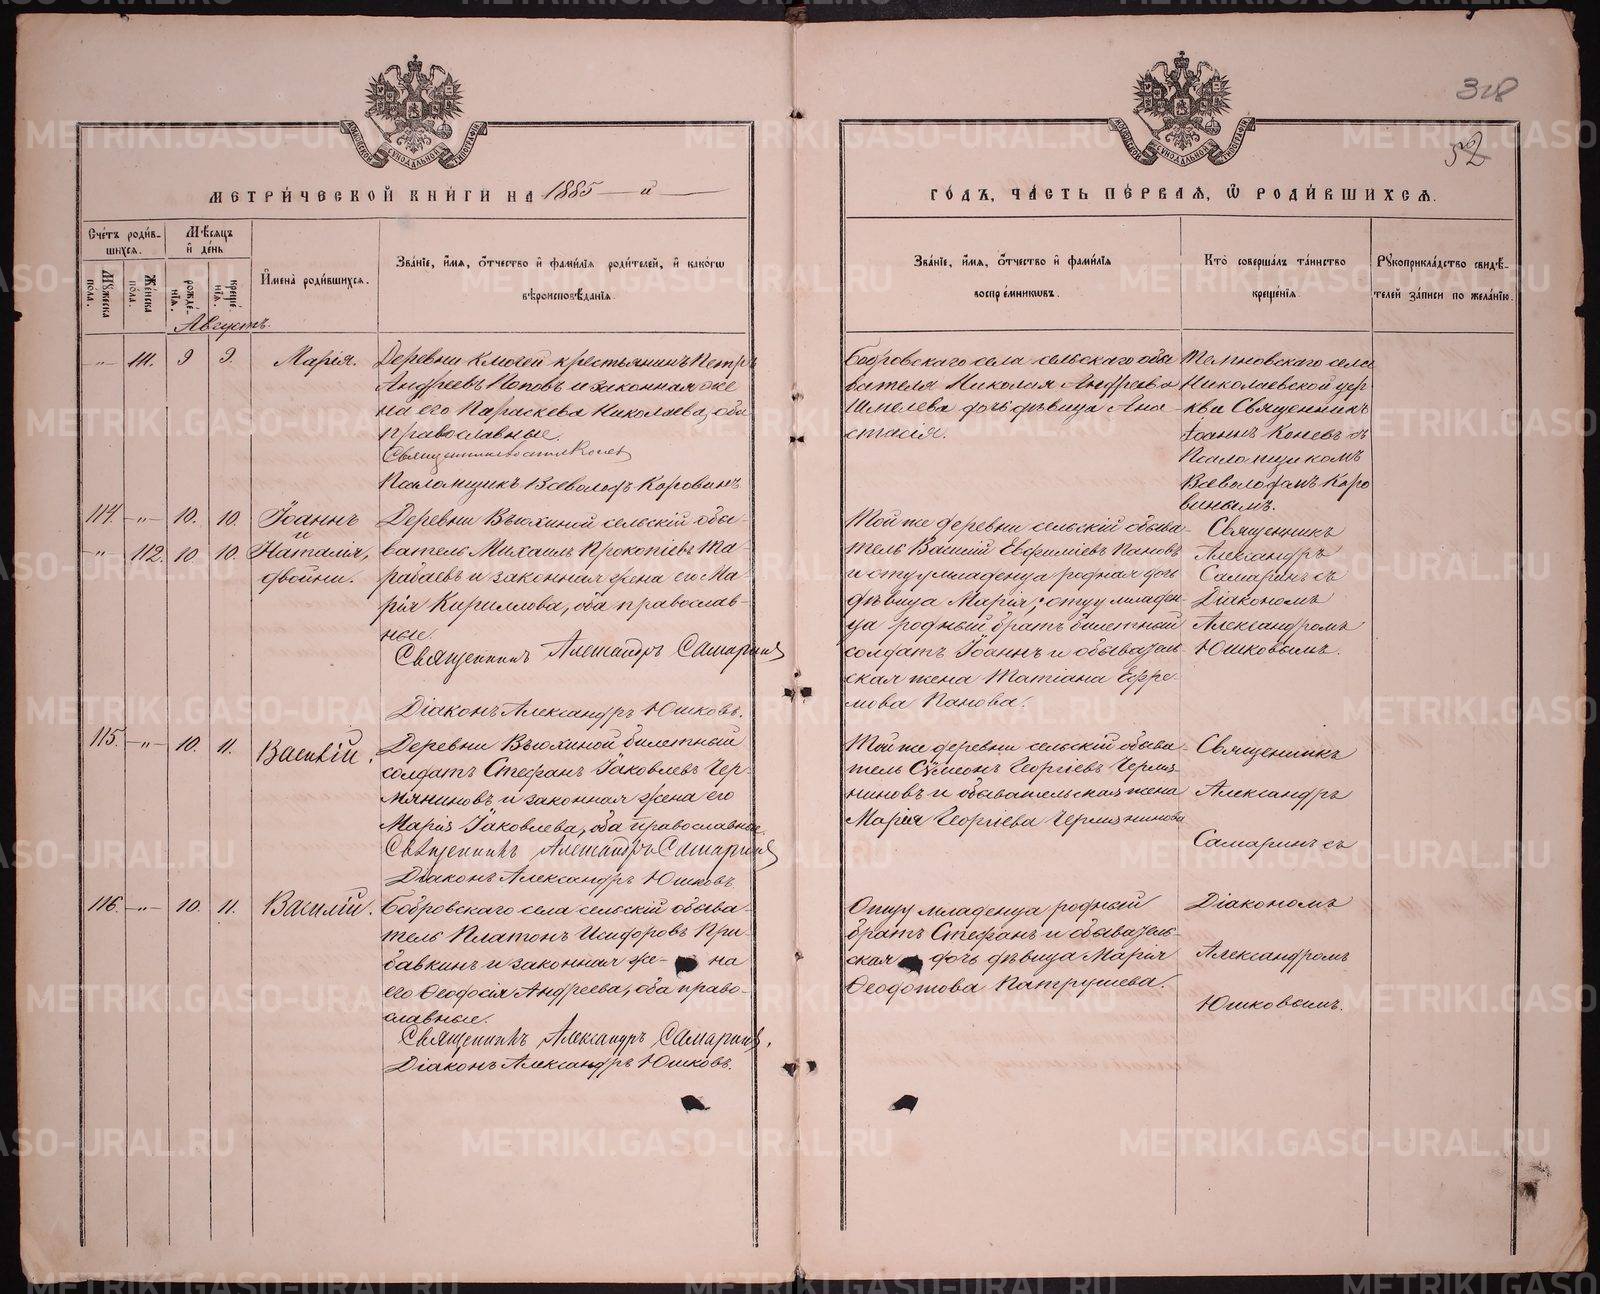 328
52
МОСКОВСКОЙ СѴНОДАЛЬНОЙ ТИПОГРАФІИ
МОСКОВСКОЙ СѴНОДАЛЬНОЙ ТИПОГРАФІИ
МЕТРИ́ЧЕСКОЙ КНИ́ГИ НА 1885 — й —
ГО́ДЪ, ЧА́СТЬ ПЕ́РВАЯ, Ѡ РОДИ́ВШИХСЯ.
Сче́тъ роди́в-
шихся.
Мꙋ́жеска по́ла.
Же́нска по́ла.
Мѣ́сяцъ и҆ де́нь
рожде́-
нїя.
креще́-
нїя.
И҆мена̀ роди́вшихся.
Зва́нїе, и҆́мя, ѻ҆́тчество и҆ фами́лїя роди́телей, и҆ како́гѡ
вѣроисповѣ́данїя.
Зва́нїе, и҆́мя, ѻ҆́тчество и҆ фами́лїя
воспрїе́мникѡвъ.
Кто̀ соверша́лъ та́инство
креще́нїя.
Рꙋкоприкла́дство свидѣ́-
телей за́писи по жела́нїю.
Августъ.
„ 111. 9 9. Марія.
Деревни Ключей крестьянинъ Петръ
Андреевъ Поповъ и законная же
на его Параскева Николаева, оба
православные.
Священникъ Іоаннъ Коневъ
Псаломщикъ Всеволодъ Коровинъ
Бобровскаго села сельскаго обы
вателя Николая Андреева
Шмелева дочь дѣвица Ана
стасія.
Темновскаго села
Николаевской цер
кви Священникъ
Іоаннъ Коневъ съ
Псаломщикомъ
Всеволодомъ Коро
винымъ.
114. — „ — 10. 10. Іоаннъ
и
„ 112. 10. 10. Наталія,
двойни.
Деревни Вьюхиной сельскій обы-
ватель Михаилъ Прокопіевъ Та-
рабаевъ и законная жена его Ма-
рія Кириллова, оба православ-
ные.
Священникъ Александръ Самаринъ
Діаконъ Александръ Юшковъ.
Той же деревни сельскій обыва-
тель Василій Евфиміевъ Пановъ
и отцу младенца родная дочь
дѣвица Марія; отцу младен-
ца родный братъ билетный
солдатъ Іоаннъ и обыватель
ская жена Татіана Ефре-
мова Панова.
Священникъ
Александръ
Самаринъ съ
Діакономъ
Александромъ
Юшковымъ.
115. — „ — 10. 11. Василій.
Деревни Вьюхиной билетный
солдатъ Стефанъ Іаковлевъ Чер-
мяниновъ и законная жена его
Марія Іаковлева, оба православные.
Священникъ Александръ Самаринъ
Діаконъ Александръ Юшковъ
Той же деревни сельскій обыва-
тель Сѵмеонъ Георгіевъ Чермя-
ниновъ и обывательская жена
Марія Георгіева Чермянинова
Священникъ
Александръ
Самаринъ съ
116. — „ — 10. 11. Василій.
Бобровскаго села сельскій обыва-
тель Платонъ Исидоровъ При-
бавкинъ и законная же- на
его Ѳеодосія Андреева, оба право-
славные.
Священникъ Александръ Самаринъ.
Діаконъ Александръ Юшковъ.
Отцу младенца родный
братъ Стефанъ и обыватель-
ская дочь дѣвица Марія
Ѳеодотова Патрушева.
Діакономъ
Александромъ
Юшковымъ.
METRIKI.GASO-URAL.RU